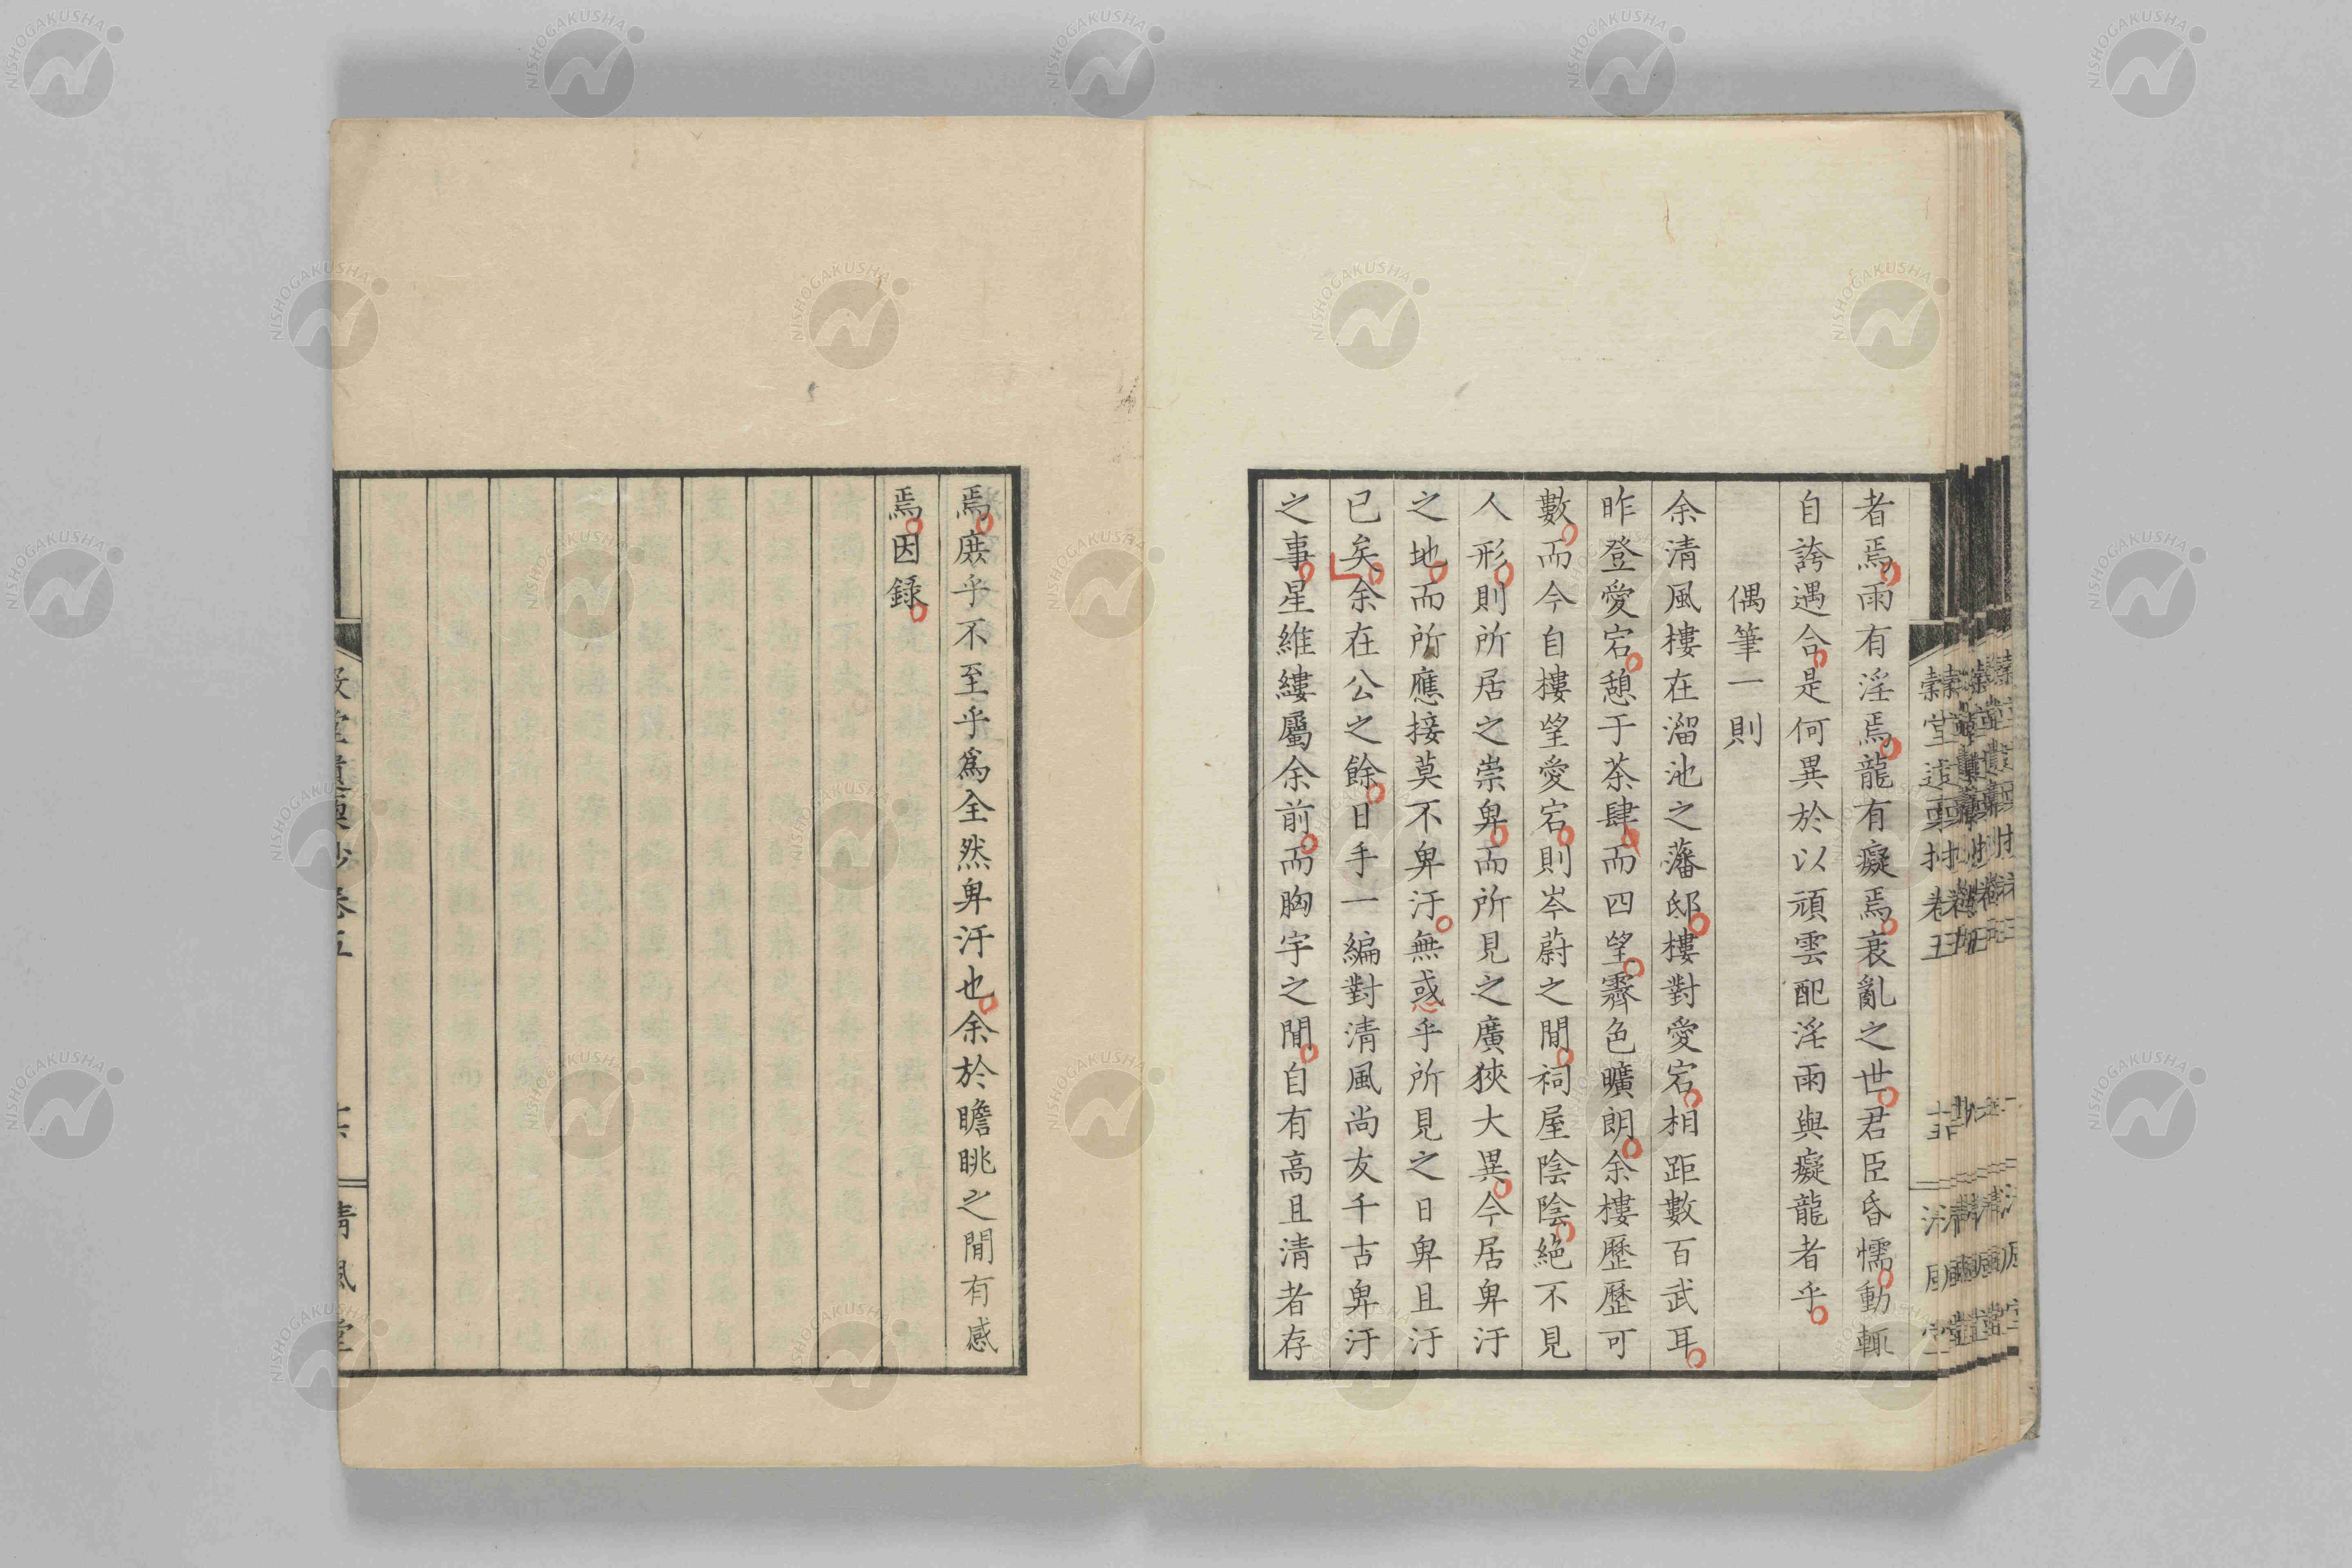 者焉雨有淫焉龍有癡焉衰亂之世君臣昏懦動輒
自誇遇合是何異於以頑雲配淫雨與癡龍者乎
偶筆一則
余清風樓在溜池之藩邸樓對愛宕相距數百武耳
昨登愛宕憩于茶肆而四望霽色曠朗余樓歷歷可
數而今自樓望愛宕則岑蔚之間祠屋陰陰絶不見
人形則所居之崇卑而所見之廣狹大異今居卑汙
之地而所應接莫不卑汙無惑乎所見之日卑且汙
已矣余在公之餘日手一編對清風尚友千古卑汙
之事星維縷屬余前而胸宇之間自有高且清者存
焉庶乎不至乎爲全然卑汙也余於瞻眺之間有感
焉因録
清風堂
NISHOGAKUSHA